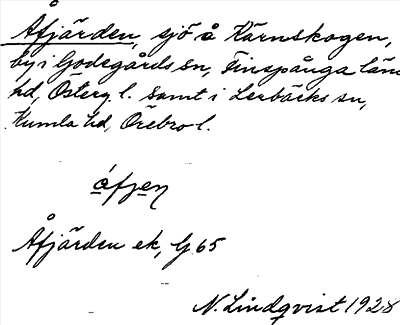 Åfjärden, sjö å Kärnskogen,
by i Godegårds sn, Finspånga läns
hd, Österg. l. samt i Lerbäcks sn,
Kumla hd, Örebro l.
åfjen
Åfjärden ek, G 65
N. Lindqvist 1928